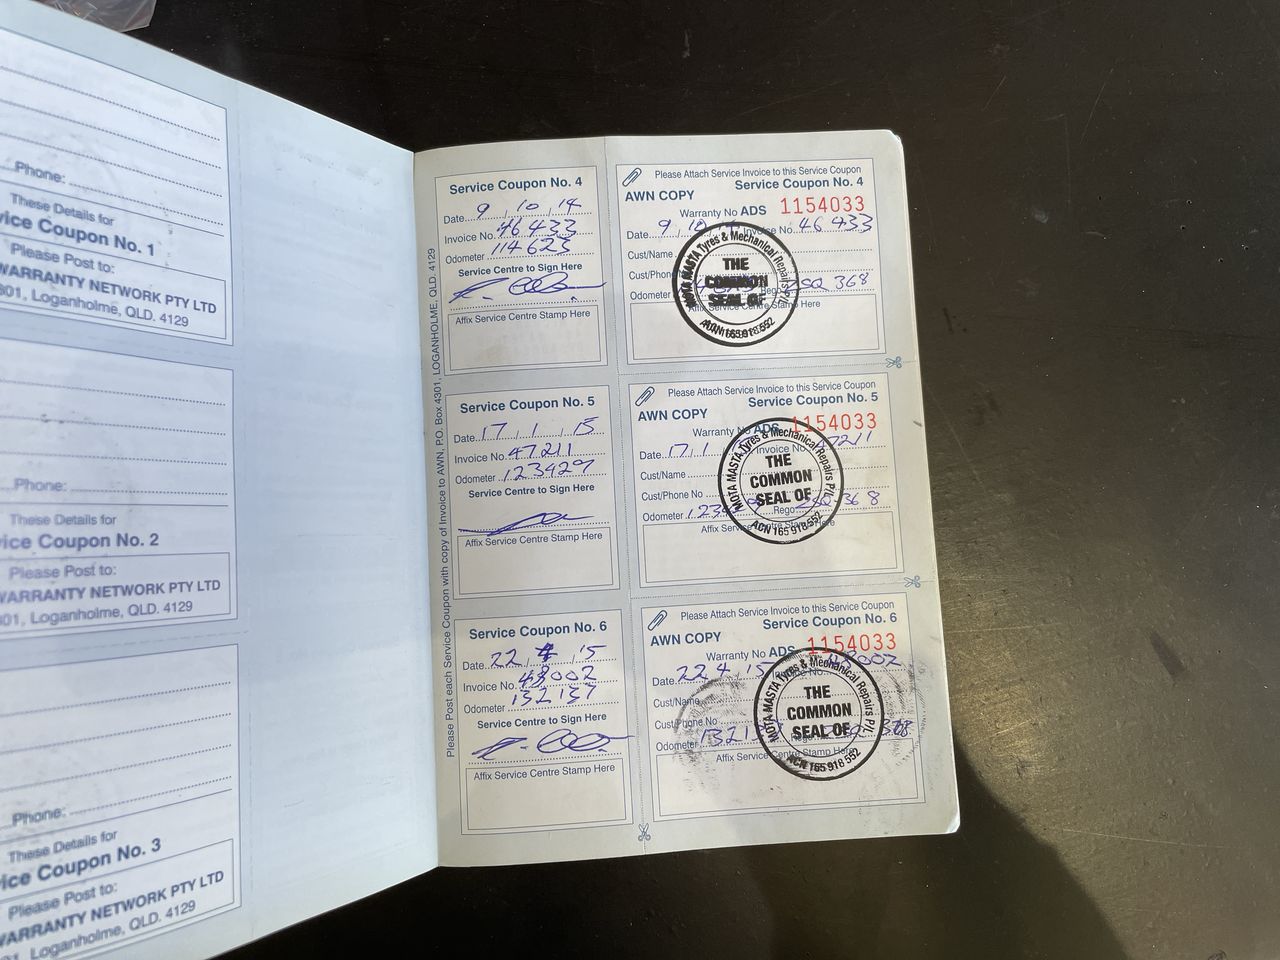 Phone:
These Details for
vice Coupon No. 1
Please Post to:
WARRANTY NETWORK PTY LTD
301, Loganholme, QLD. 4129
Phone:
These Details for
ice Coupon No. 2
Please Post to:
WARRANTY NETWORK PTY LTD
01, Loganholme, QLD. 4129
Phone:
These Details for
ice Coupon No. 3
Please Post to:
WARRANTY NETWORK PTY LTD
Loganholme, QLD. 4129
Please Post each Service Coupon with copy of Invoice to AWN, P.O. Box 4301, LOGANHOLME, QLD. 4129
Service Coupon No. 4
Date 9 10 14
Invoice No. 46433
Odometer 114623
Service Centre to Sign Here
Affix Service Centre Stamp Here
Please Attach Service Invoice to this Service Coupon
Service Coupon No. 4
AWN COPY
Warranty No ADS 1154033
Date 9 10 Invoice No. 46433
Cust/Name
Cust/Phone
Odometer Rego 368
Affix Service Centre Stamp Here
MOTA MASTA Tyres & Mechanical Repairs P/L
THE
COMMON
SEAL OF
ACN 165 918 552
Service Coupon No. 5
Date 17 1 15
Invoice No. 47211
Odometer 123429
Service Centre to Sign Here
Affix Service Centre Stamp Here
Please Attach Service Invoice to this Service Coupon
Service Coupon No. 5
AWN COPY
Warranty No ADS 1154033
Date 17 1 Invoice No. 47211
Cust/Name
Cust/Phone No
Odometer Rego 368
Affix Service Centre Stamp Here
MOTA MASTA Tyres & Mechanical Repairs P/L
THE
COMMON
SEAL OF
ACN 165 918 552
Service Coupon No. 6
Date 22 4 15
Invoice No. 48002
Odometer 132137
Service Centre to Sign Here
Affix Service Centre Stamp Here
Please Attach Service Invoice to this Service Coupon
Service Coupon No. 6
AWN COPY
Warranty No ADS 1154033
Date 22 4 15 Invoice No. 48002
Cust/Name
Cust/Phone No
Odometer Rego 368
Affix Service Centre Stamp Here
MOTA MASTA Tyres & Mechanical Repairs P/L
THE
COMMON
SEAL OF
ACN 165 918 552